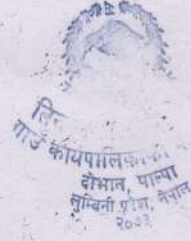 गाउँ कार्यपालिकाको
दोभान, पाल्पा
लुम्बिनी प्रदेश, नेपाल
२०७३